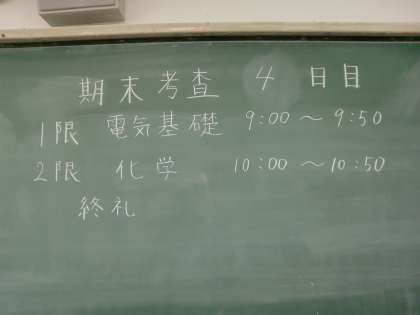 期末考査 4日目
1限 電気基礎 9:00～9:50
2限 化学 10:00～10:50
終礼